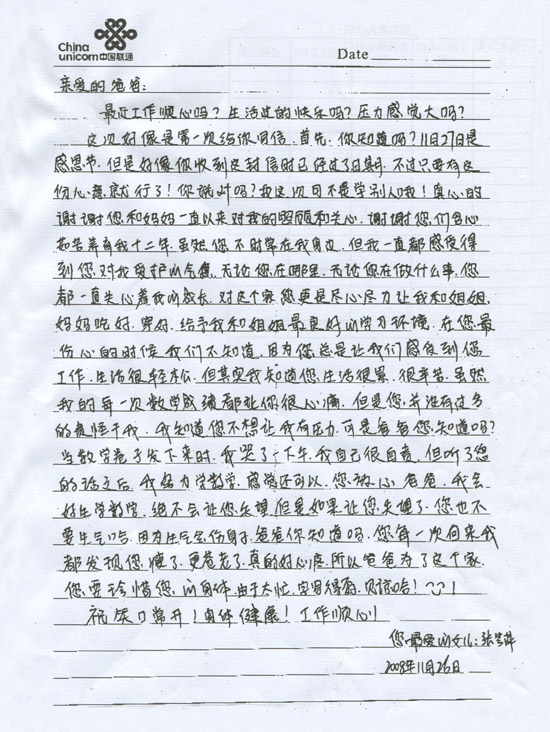 China
unicom中国联通
Date
亲爱的爸爸:
最近工作顺心吗?生活过的快乐吗?压力感觉大吗?
这次好像是第一次给你回信.首先.你知道吗?11月27日是
感恩节.但是好像你收到这封信时已经过了日期.不过只要有这
份心意就行了!你说对吗?我这次可不是学别人哦!真心的
谢谢您和妈妈一直以来对我的照顾和关心.谢谢您们含心
茹苦养育我十二年.虽然您不时常在我身边.但我一直都感受得
到您对我爱护.无论您在哪里.无论您在做什么事.您
都一直关心着我的成长.对这个家您更是尽心尽力让我和姐姐.
妈妈吃好.穿好.给予我和姐姐最良好的学习环境.在您最
伤心的时候我们不知道.因为您总是让我们感受到您
工作.生活很轻松.但其实我知道您生活很累.很辛苦.虽然
我的每一次数学成绩都让你很心痛.但是您并没有过多
的责怪于我.我知道您不想让我有压力.可是爸爸您知道吗?
当数学卷子发下来时.我哭了一下午.我自己很自责.但听了您
的话之后.我努力学数学.感觉还可以.您放心爸爸.我会
好好学数学.绝不会让您失望.但是如果让您失望了.您也不
要生气哈.因为生气会伤身子.爸爸你知道吗.您每一次回来我
都发现您瘦了.更苍老了.真的好心疼.所以爸爸为了这个家.
您要珍惜您的身体.由于太忙.字写得.见谅哈!
祝笑口常开!身体健康!工作顺心!
您最爱的女儿:张
2008年11月26日